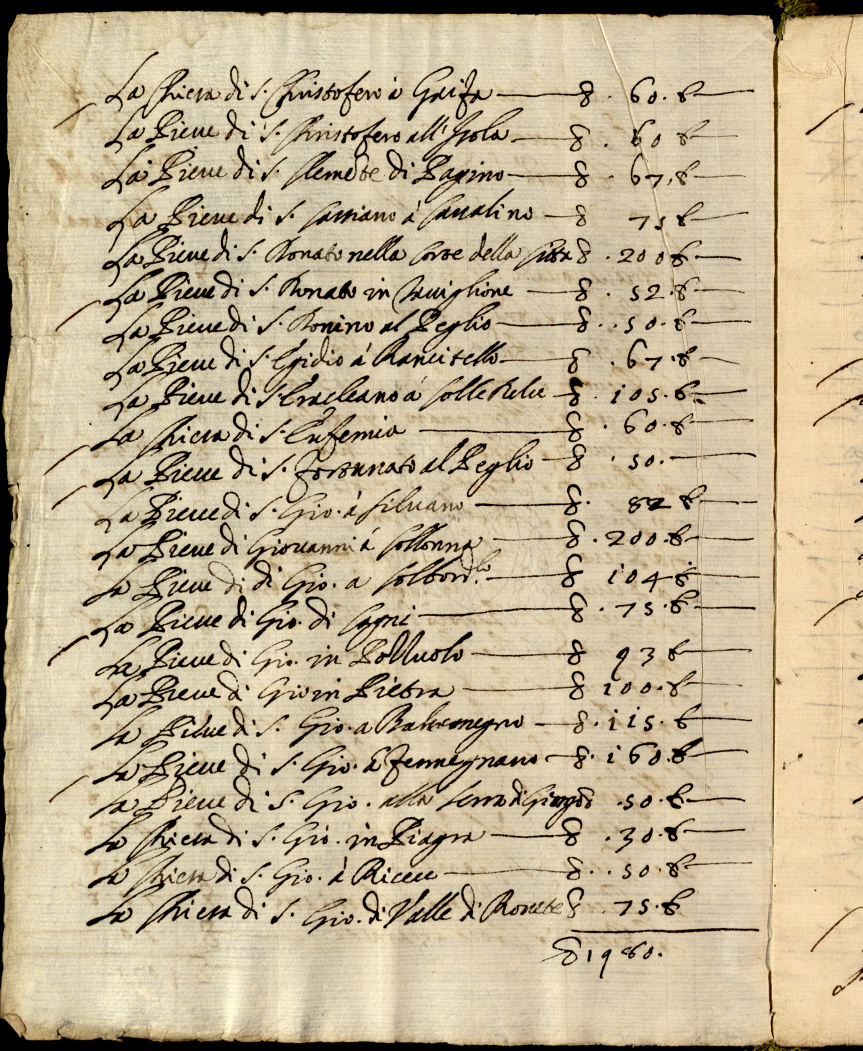 La Chiesa di S. Christofero à Gaifa — 8. 60. 8
La Pieve di S. Christofero all'Isola — 8. 60 8
La Pieve di S. Clemẽte di Pagino — 8. 67. 8
La Pieve di S. Cassiano à Cavalino — 8 75 8
La Pieve di S. Donato nella Corte della Città 8. 200 8
La Pieve di S. Donato in Taviglione 8. 52. 8
La Pieve di S. Donino al Peglio — 8. 50. 8
La Pieve di S. Egidio à Rancitello — 8. 67. 8
La Pieve di S. Eracleano à Colle 8. 105. 8
La Chiesa di S. Eufemia — 8. 60. 8
La Pieve di S. Fortunato al Peglio — 8. 50.
La Pieve di S. Gio. à Silvano — 8. 82 8
La Pieve di Giovanni à Collonna — 8. 200. 8
La Pieve di di Gio. a — 8. 104 8
La Pieve di Gio. di Cagni — 8. 75. 8
La Pieve di Gio. in Polluolo — 8 93 8
La Pieve di Gio in Pietra — 8 100. 8
La Pieve di S. Gio. a — 8. 115. 8
La Pieve di S. Gio. à Fermegnano — 8. 160. 8
La Pieve di S. Gio. alla Serra di 8 50. 8
La Chiesa di S. Gio. in Piagra — 8. 30. 8
La Chiesa di S. Gio. à Ricece — 8. 50. 8
La Chiesa di S. Gio. di Valle di 8 75. 8
8 1980.